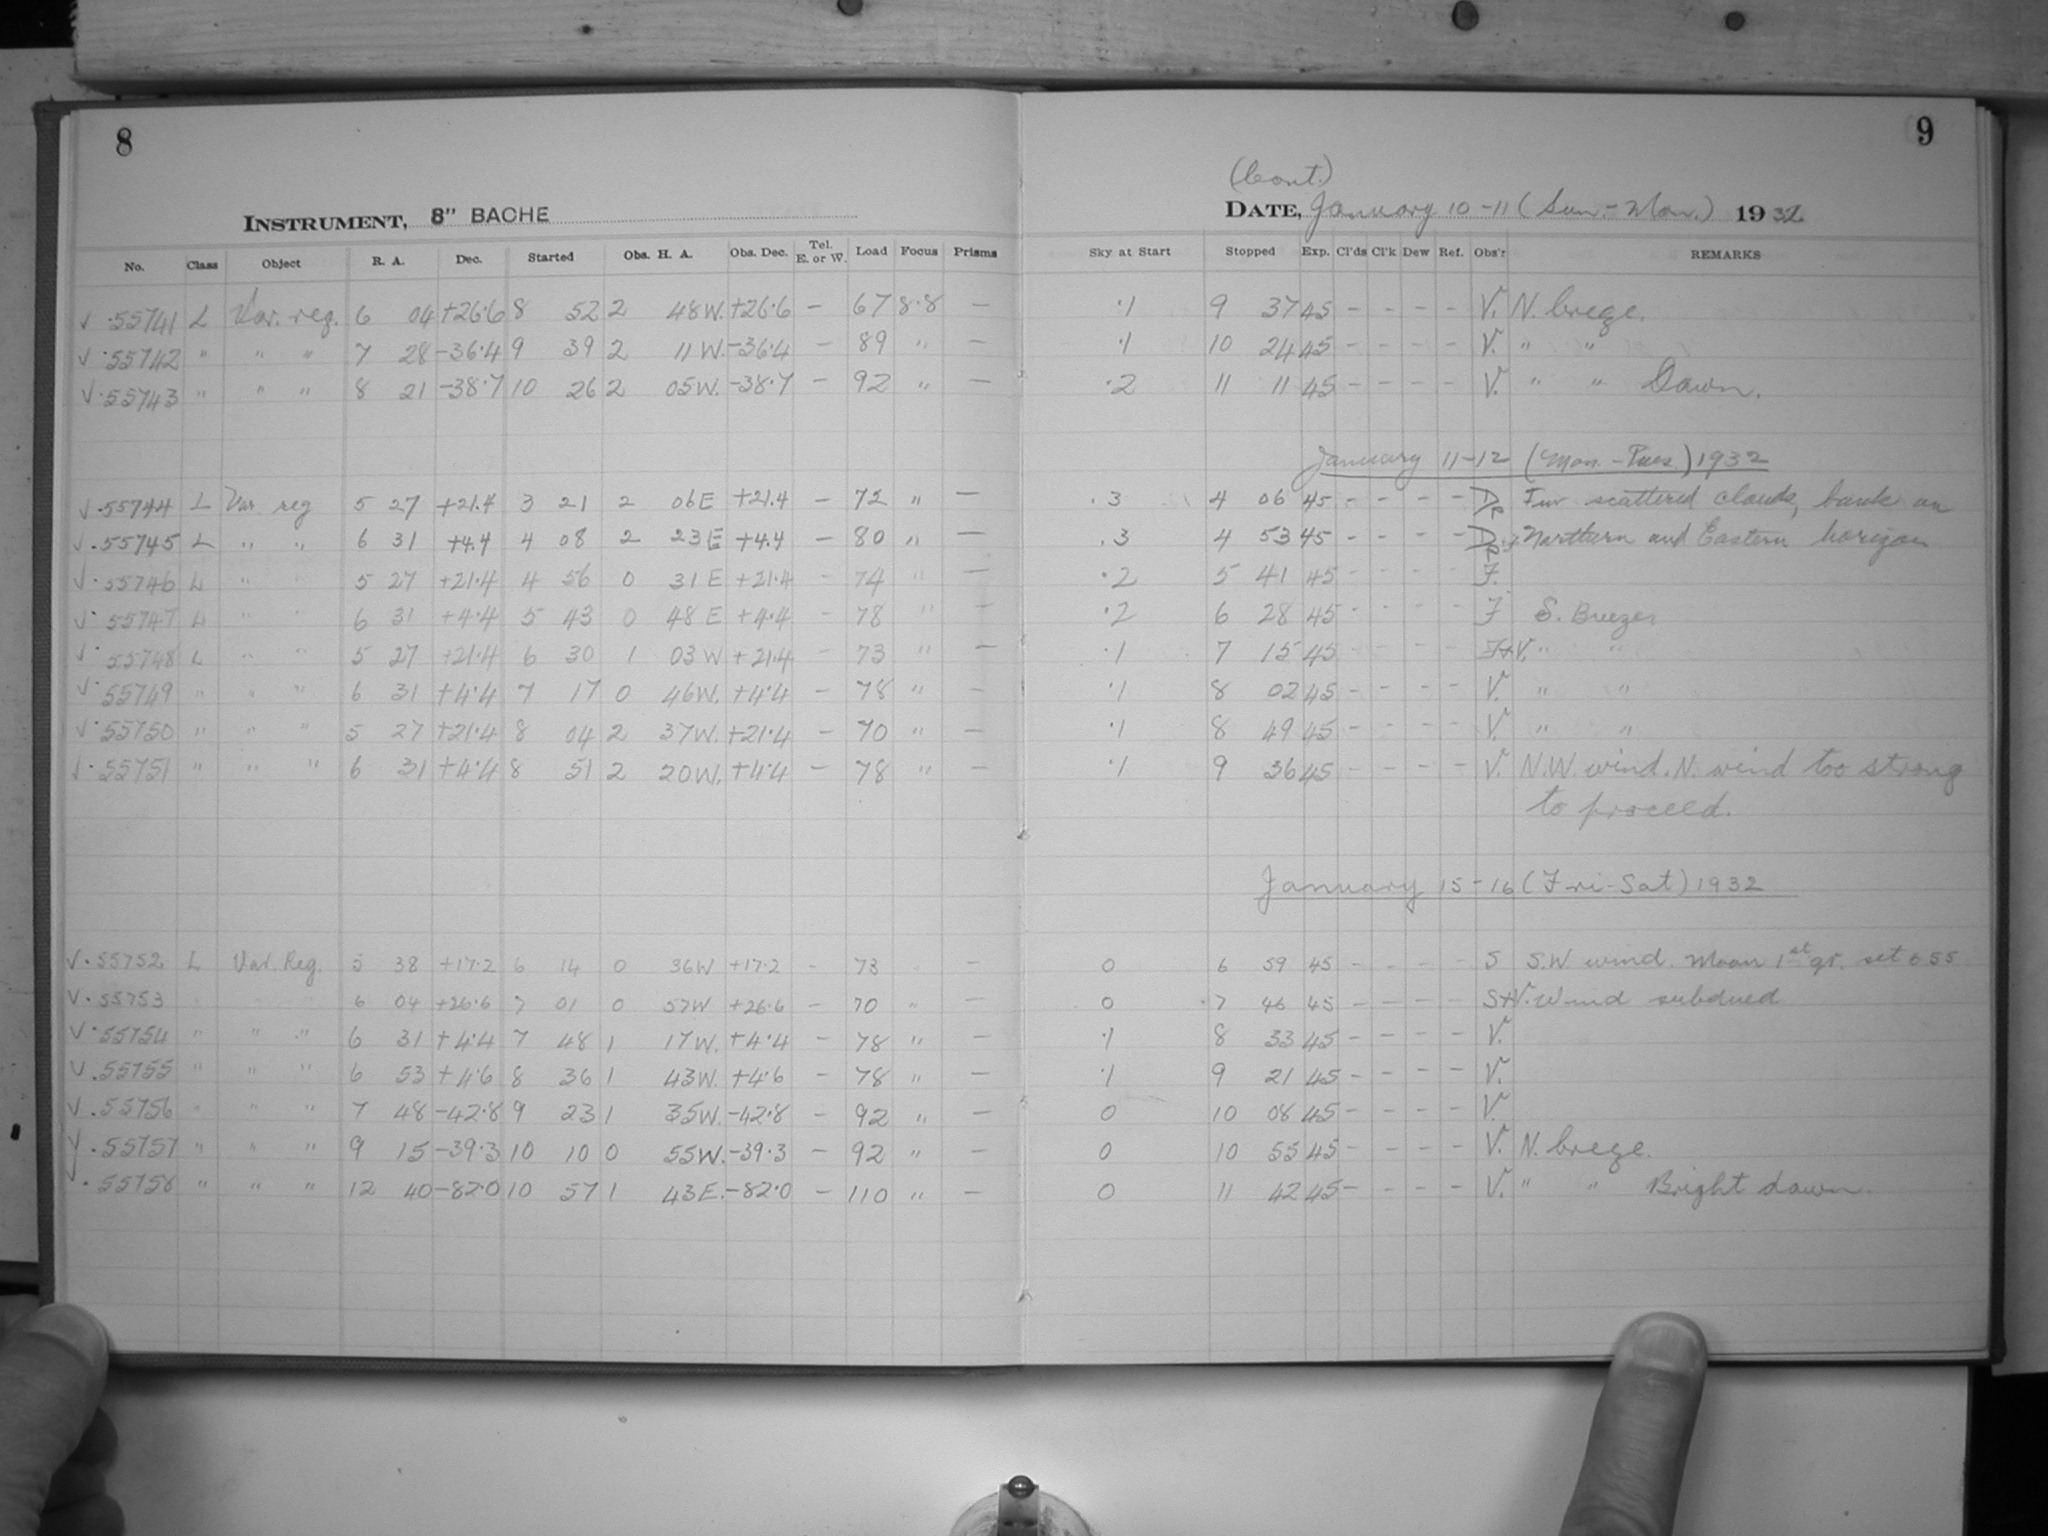 8
9
(Cont.)
INSTRUMENT, 8" BACHE
DATE, January 10-11 (Sun.-Mon.) 1932
No. Class Object R. A. Dec. Started Obs. H. A. Obs. Dec. Tel. E. or W. Load Focus Prisms Sky at Start Stopped Exp. Cl'ds Cl'k Dew Ref. Obs'r REMARKS
√ ·55741 L Var. reg. 6 04 +26·6 8 52 2 48W. +26·6 – 67 8·8 – ·1 9 37 45 – – – – V. N. breeze.
√ ·55742 " " " 7 28 -36·4 9 39 2 11W. -36·4 – 89 " – ·1 10 24 45 – – – – V. " "
√ ·55743 " " " 8 21 -38·7 10 26 2 05W. -38·7 – 92 " – ·2 11 11 45 – – – – V. " " Dawn.
January 11-12 (Mon.-Tues.) 1932
√ ·55744 L Var reg 5 27 +21.4 3 21 2 06E +21.4 – 72 " – .3 4 06 45 – – – – De Few scattered clouds, bank on
√ ·55745 L " " 6 31 +4.4 4 08 2 23E +4.4 – 80 " – .3 4 53 45 – – – – Northern and Eastern horizon
√ ·55746 L " " 5 27 +21.4 4 56 0 31E +21.4 – 74 " – ·2 5 41 45 – – – – F.
√ ·55747 L " " 6 31 +4·4 5 43 0 48E +4·4 – 78 " – ·2 6 28 45 – – – – F S. Breezes
√ ·55748 L " " 5 27 +21.4 6 30 1 03W +21.4 – 73 " – ·1 7 15 45 – – – – F+V. " "
√ ·55749 " " " 6 31 +4·4 7 17 0 46W. +4·4 – 78 " – ·1 8 02 45 – – – – V. " "
√ ·55750 " " " 5 27 +21.4 8 04 2 37W. +21.4 – 70 " – ·1 8 49 45 – – – – V. " "
√ ·55751 " " " 6 31 +4·4 8 51 2 20W. +4·4 – 78 " – ·1 9 36 45 – – – – V. N.W. wind. N. wind too strong
to proceed.
January 15-16 (Fri-Sat) 1932
√ ·55752 L Var. Reg. 5 38 +17.2 6 14 0 36W +17.2 – 73 – 0 6 59 45 – – – – S S.W. wind. Moon 1st qr. set 6 55
√ ·55753 6 04 +26.6 7 01 0 57W +26.6 – 70 " – 0 7 46 45 – – – – S+V. Wind subdued
√ ·55754 " " " 6 31 +4·4 7 48 1 17W. +4·4 – 78 " – ·1 8 33 45 – – – – V.
√ ·55755 " " " 6 53 +4·6 8 36 1 43W. +4·6 – 78 " – ·1 9 21 45 – – – – V.
√ ·55756 " " " 7 48 -42.8 9 23 1 35W. -42.8 – 92 " – 0 10 08 45 – – – – V.
√ ·55757 " " " 9 15 -39·3 10 10 0 55W. -39·3 – 92 " – 0 10 55 45 – – – – V. N. breeze.
√ ·55758 " " " 12 40 -82·0 10 57 1 43E. -82·0 – 110 " – 0 11 42 45 – – – – V. " " Bright dawn.